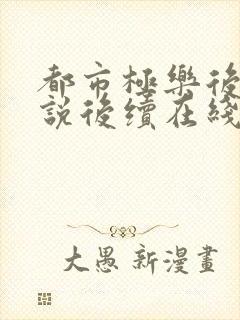 都市極樂後
說後續在綫
大愚新漫畫